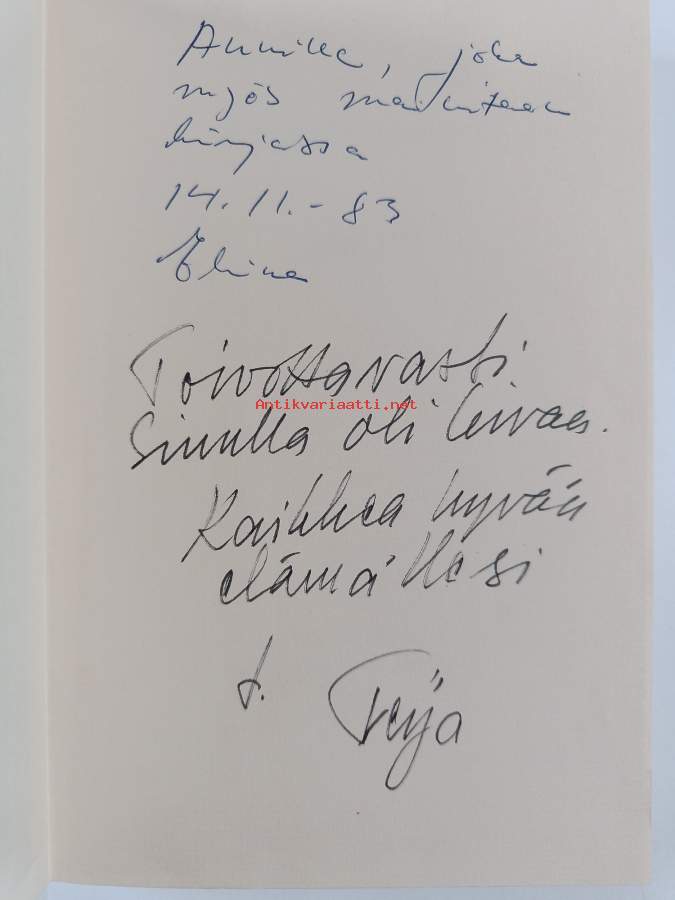 Annille, joka
myös mainitaan
kirjassa
14.11.-83
Elina
Toivottavasti
Antikvariaatti.net
Sinulla oli kivaa.
Kaikkea hyvää
elämällesi
t. Teija